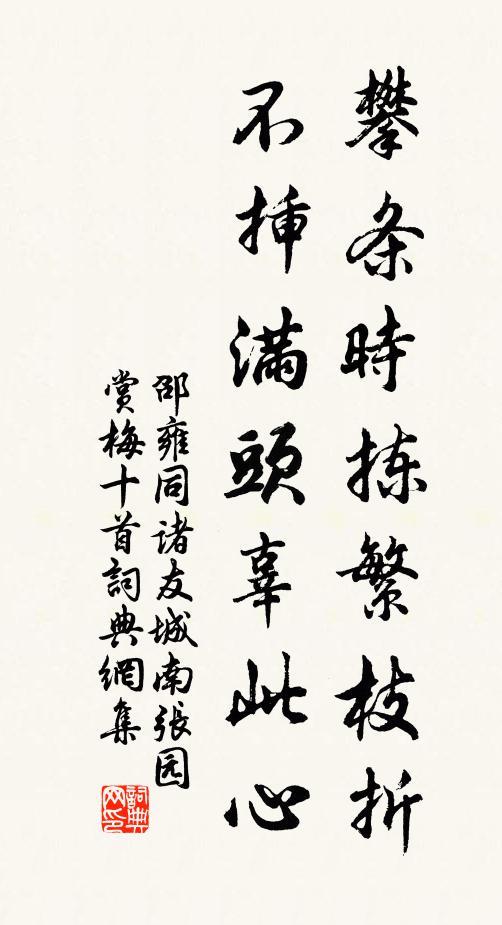 攀条時揀繁枝折
不挿滿頭辜此心
邵雍同诸友城南張园
赏梅十首詞典網集
詞典网印